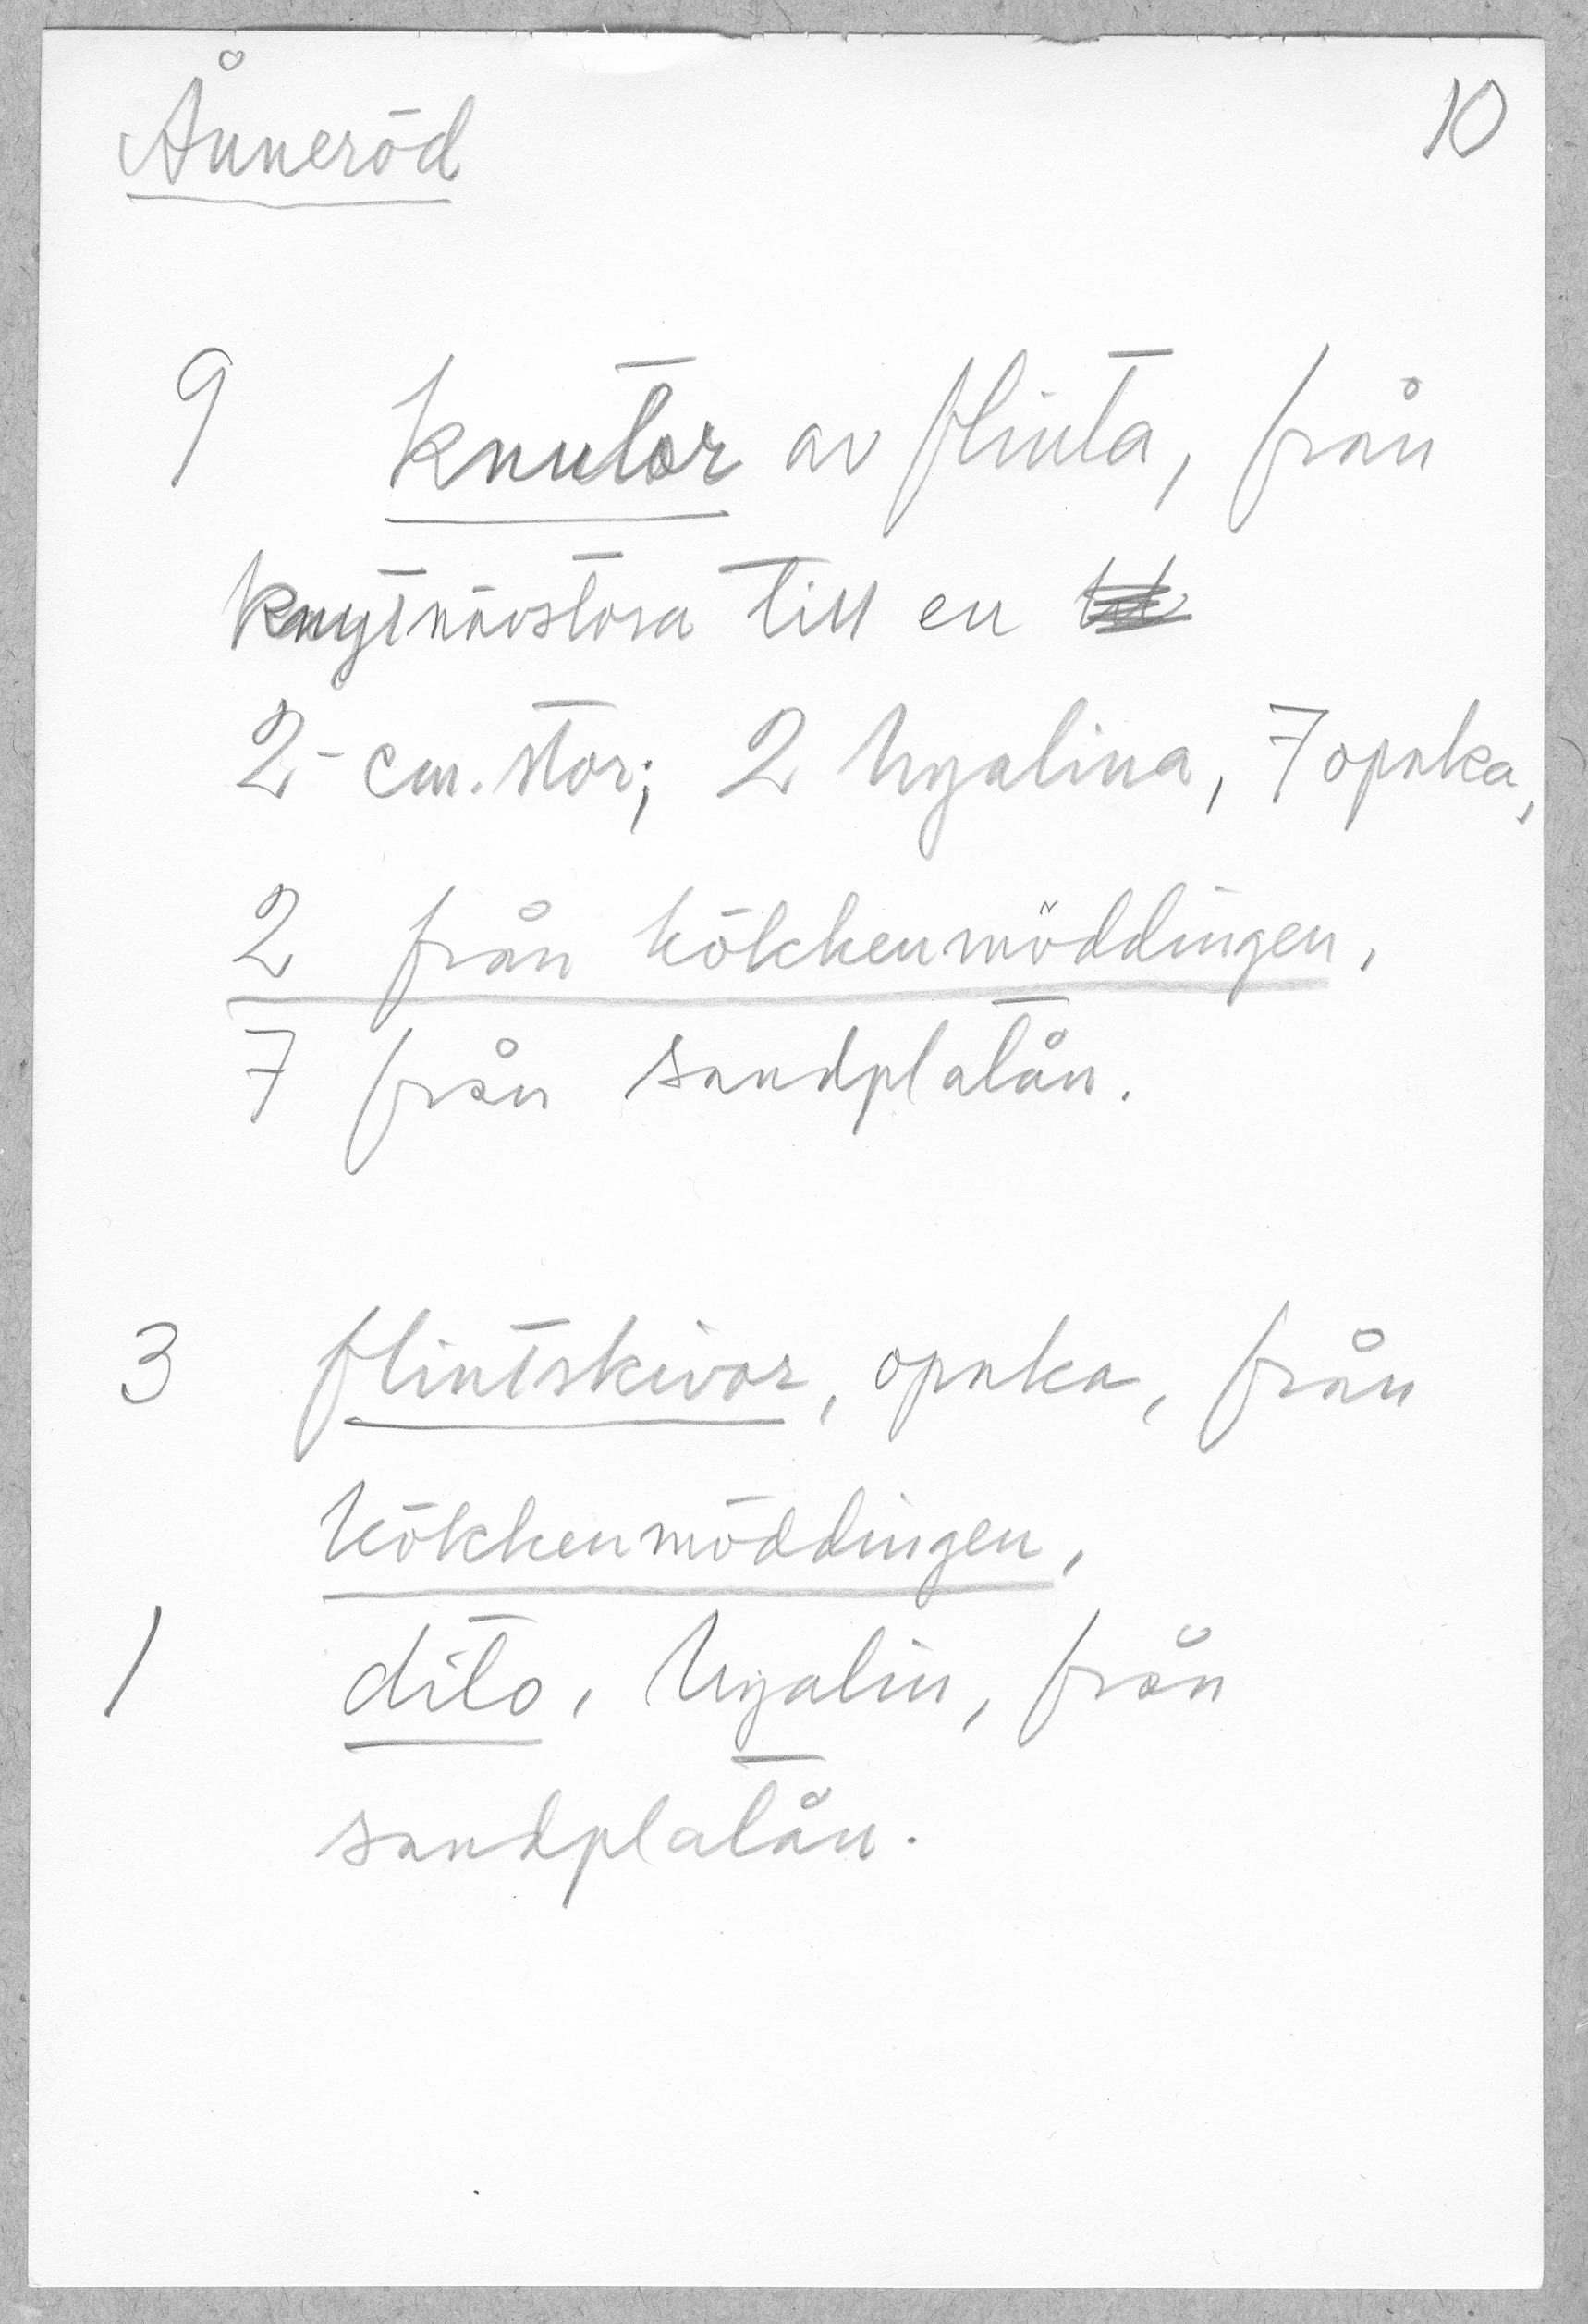 Ånneröd 10
9 knutor av flinta, från
knytnävstora till en
2-cm. stor; 2 hyalina, 7 opaka,
2 från kökkenmöddingen,
7 från sandplatån.
3 flintskivor, opaka, från
kökkenmöddingen,
1 dito, hyalin, från
sandplatån.